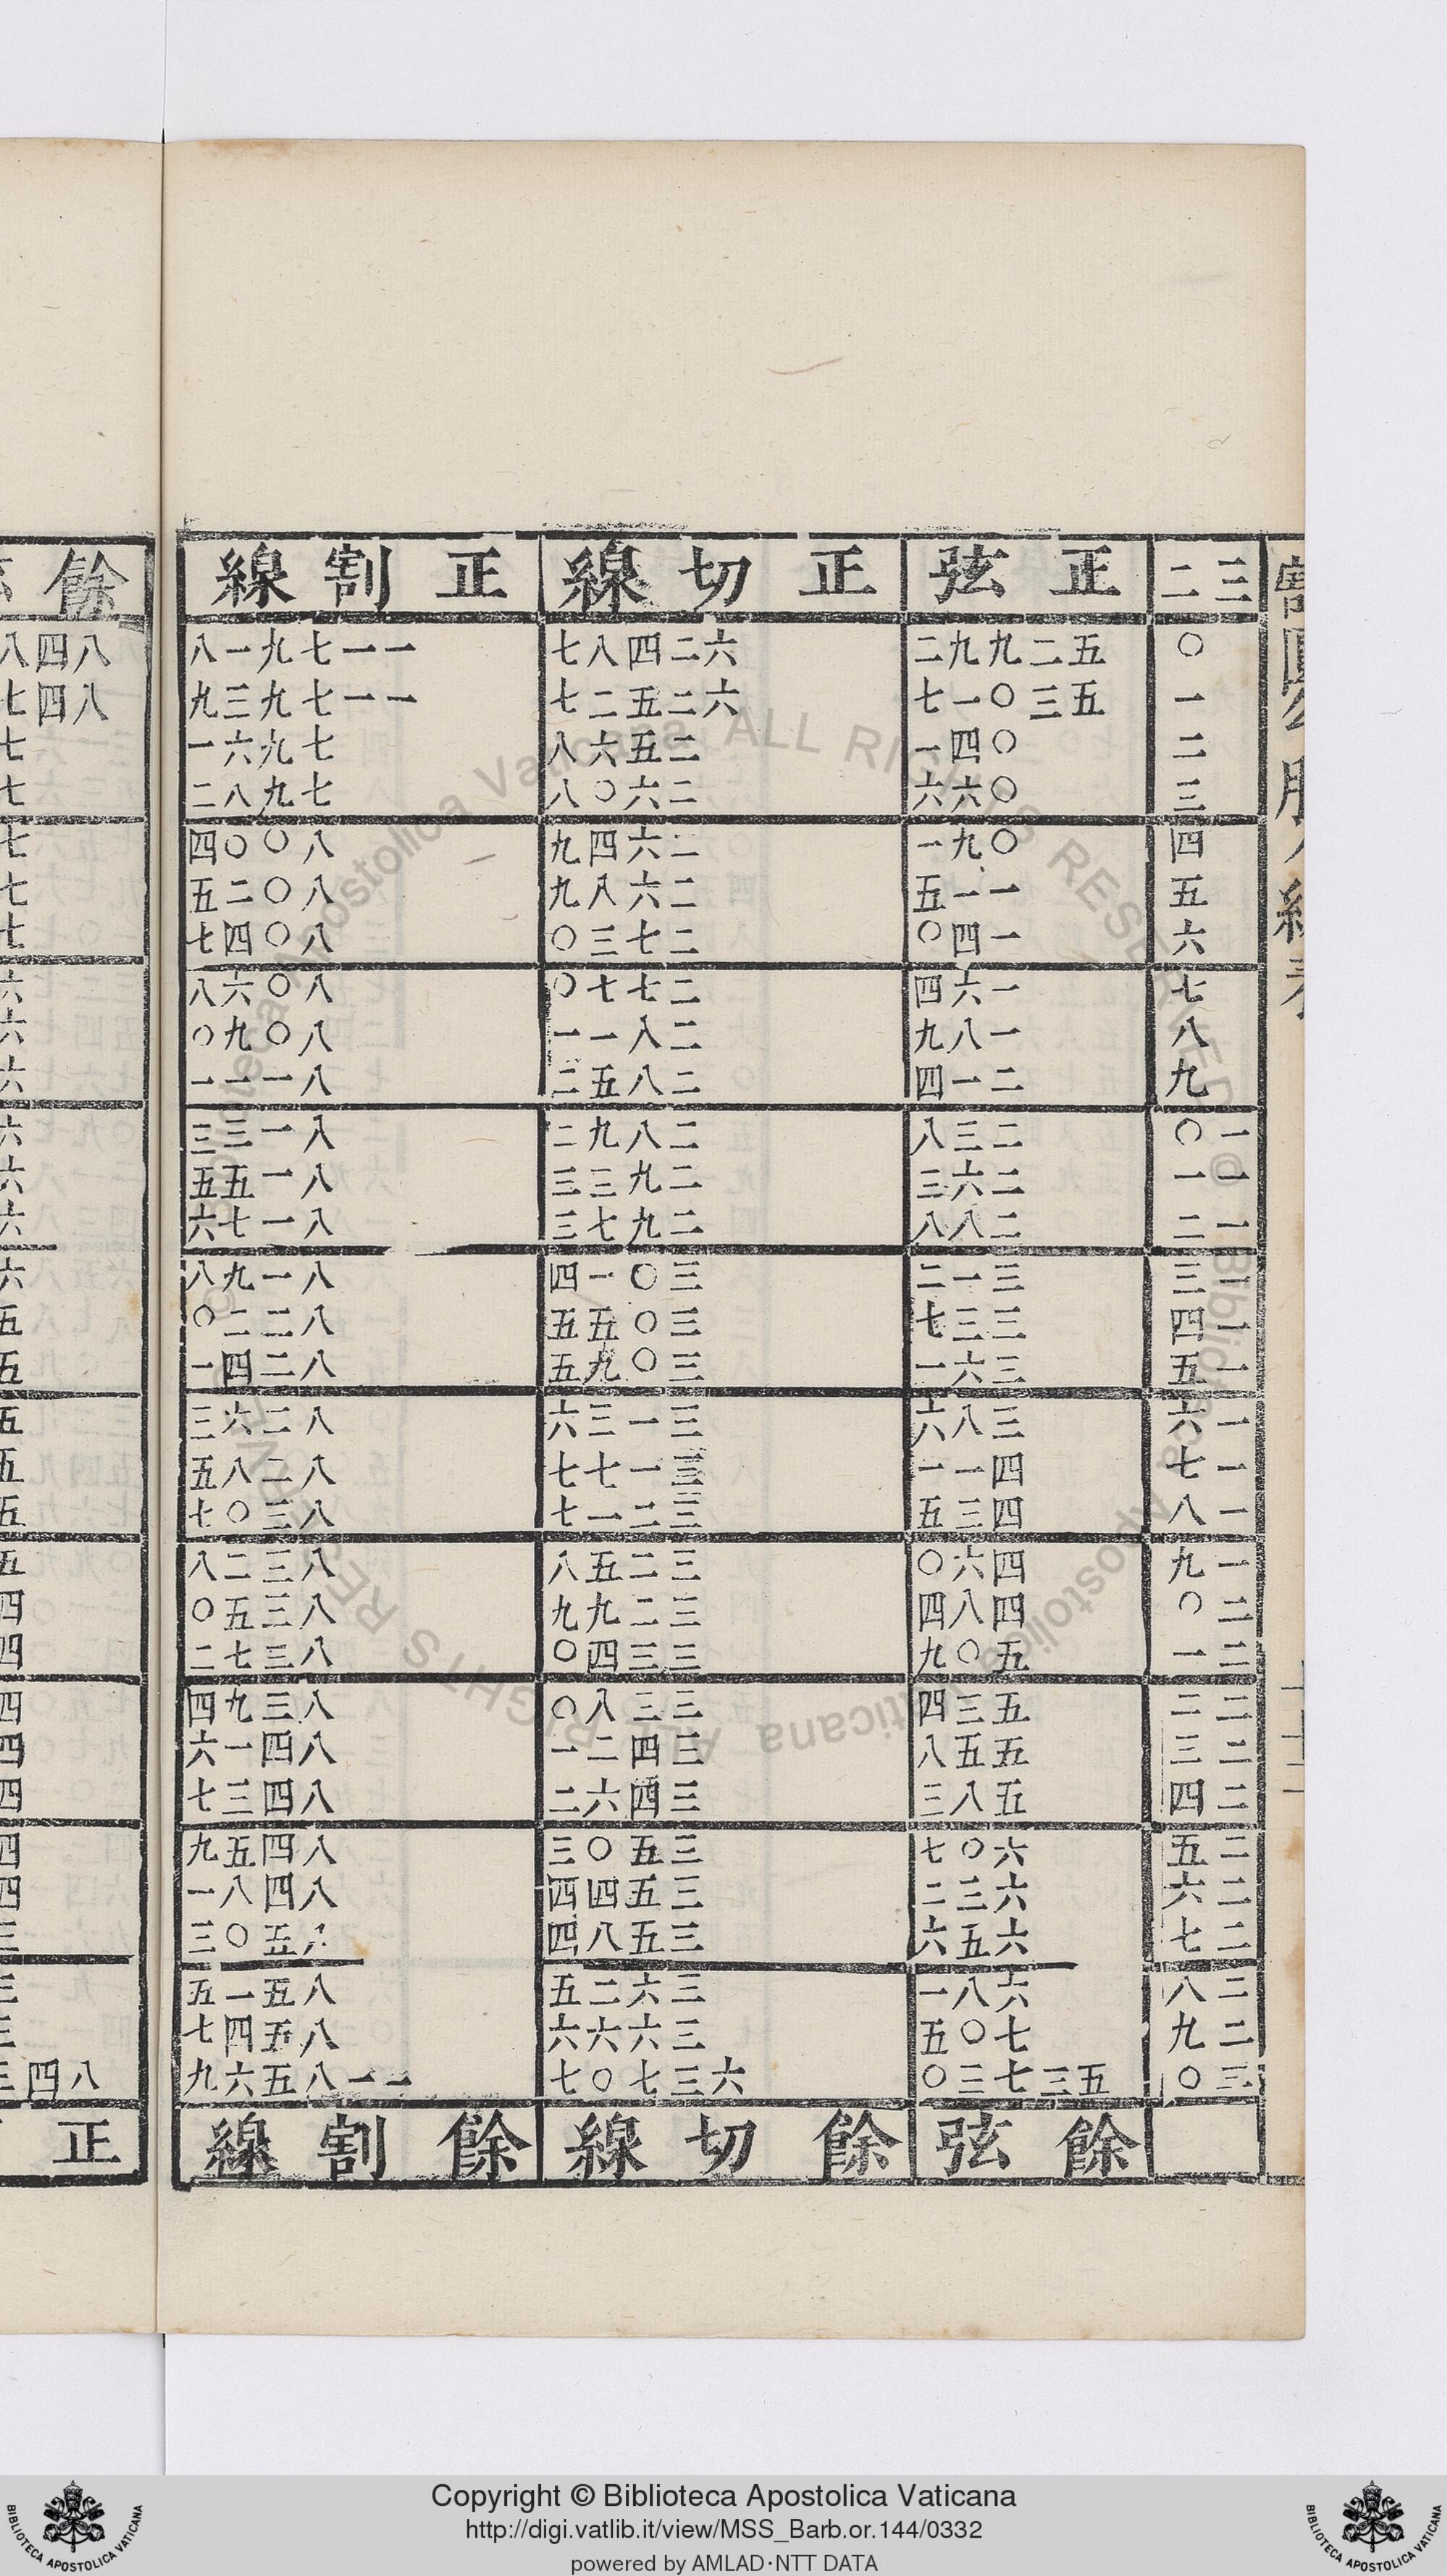 三二 正弦 正切線 正割線 餘
〇 五二九九二 六二四八七 一一七九一八 八四八
一 五三〇一七 六二五二七 一一七九三九 八四七
二 〇四一 二五六八 七九六一 七
三 〇六六 二六〇八 七九八二 七
四 〇九一 二六四九 八〇〇四 七
五 一一五 二六八九 八〇二五 七
六 一四〇 二七三〇 八〇四七 七
七 一六四 二七七〇 八〇六八 六
八 一八九 二八一一 八〇九〇 六
九 二一四 二八五二 八一一一 六
一〇 二三八 二八九二 八一三三 六
一一 二六三 二九三三 八一五五 六
一二 二八八 二九七三 八一七六 六
一三 三一二 三〇一四 八一九八 六
一四 三三七 三〇五五 八二二〇 五
一五 三六一 三〇九五 八二四一 五
一六 三八六 三一三六 八二六三 五
一七 四一一 三一七七 八二八五 五
一八 四三五 三二一七 八三〇七 五
一九 四六〇 三二五八 八三二八 五
二〇 四八四 三二九九 八三五〇 四
二一 五〇九 三三四〇 八三七二 四
二二 五三四 三三八〇 八三九四 四
二三 五五八 三四二一 八四一六 四
二四 五八三 三四六二 八四三七 四
二五 六〇七 三五〇三 八四五九 四
二六 六三二 三五四四 八四八一 四
二七 六五六 三五八四 八五〇三 三
二八 六八一 三六二五 八五一五 三
二九 七〇五 三六六六 八五四七 三
三〇 五三七三〇 六三七〇七 一一八五六九 八四三
餘弦 餘切線 餘割線 正
Copyright © Biblioteca Apostolica Vaticana
http://digi.vatlib.it/view/MSS_Barb.or.144/0332
powered by AMLAD·NTT DATA
BIBLIOTECA APOSTOLICA VATICANA
BIBLIOTECA APOSTOLICA VATICANA